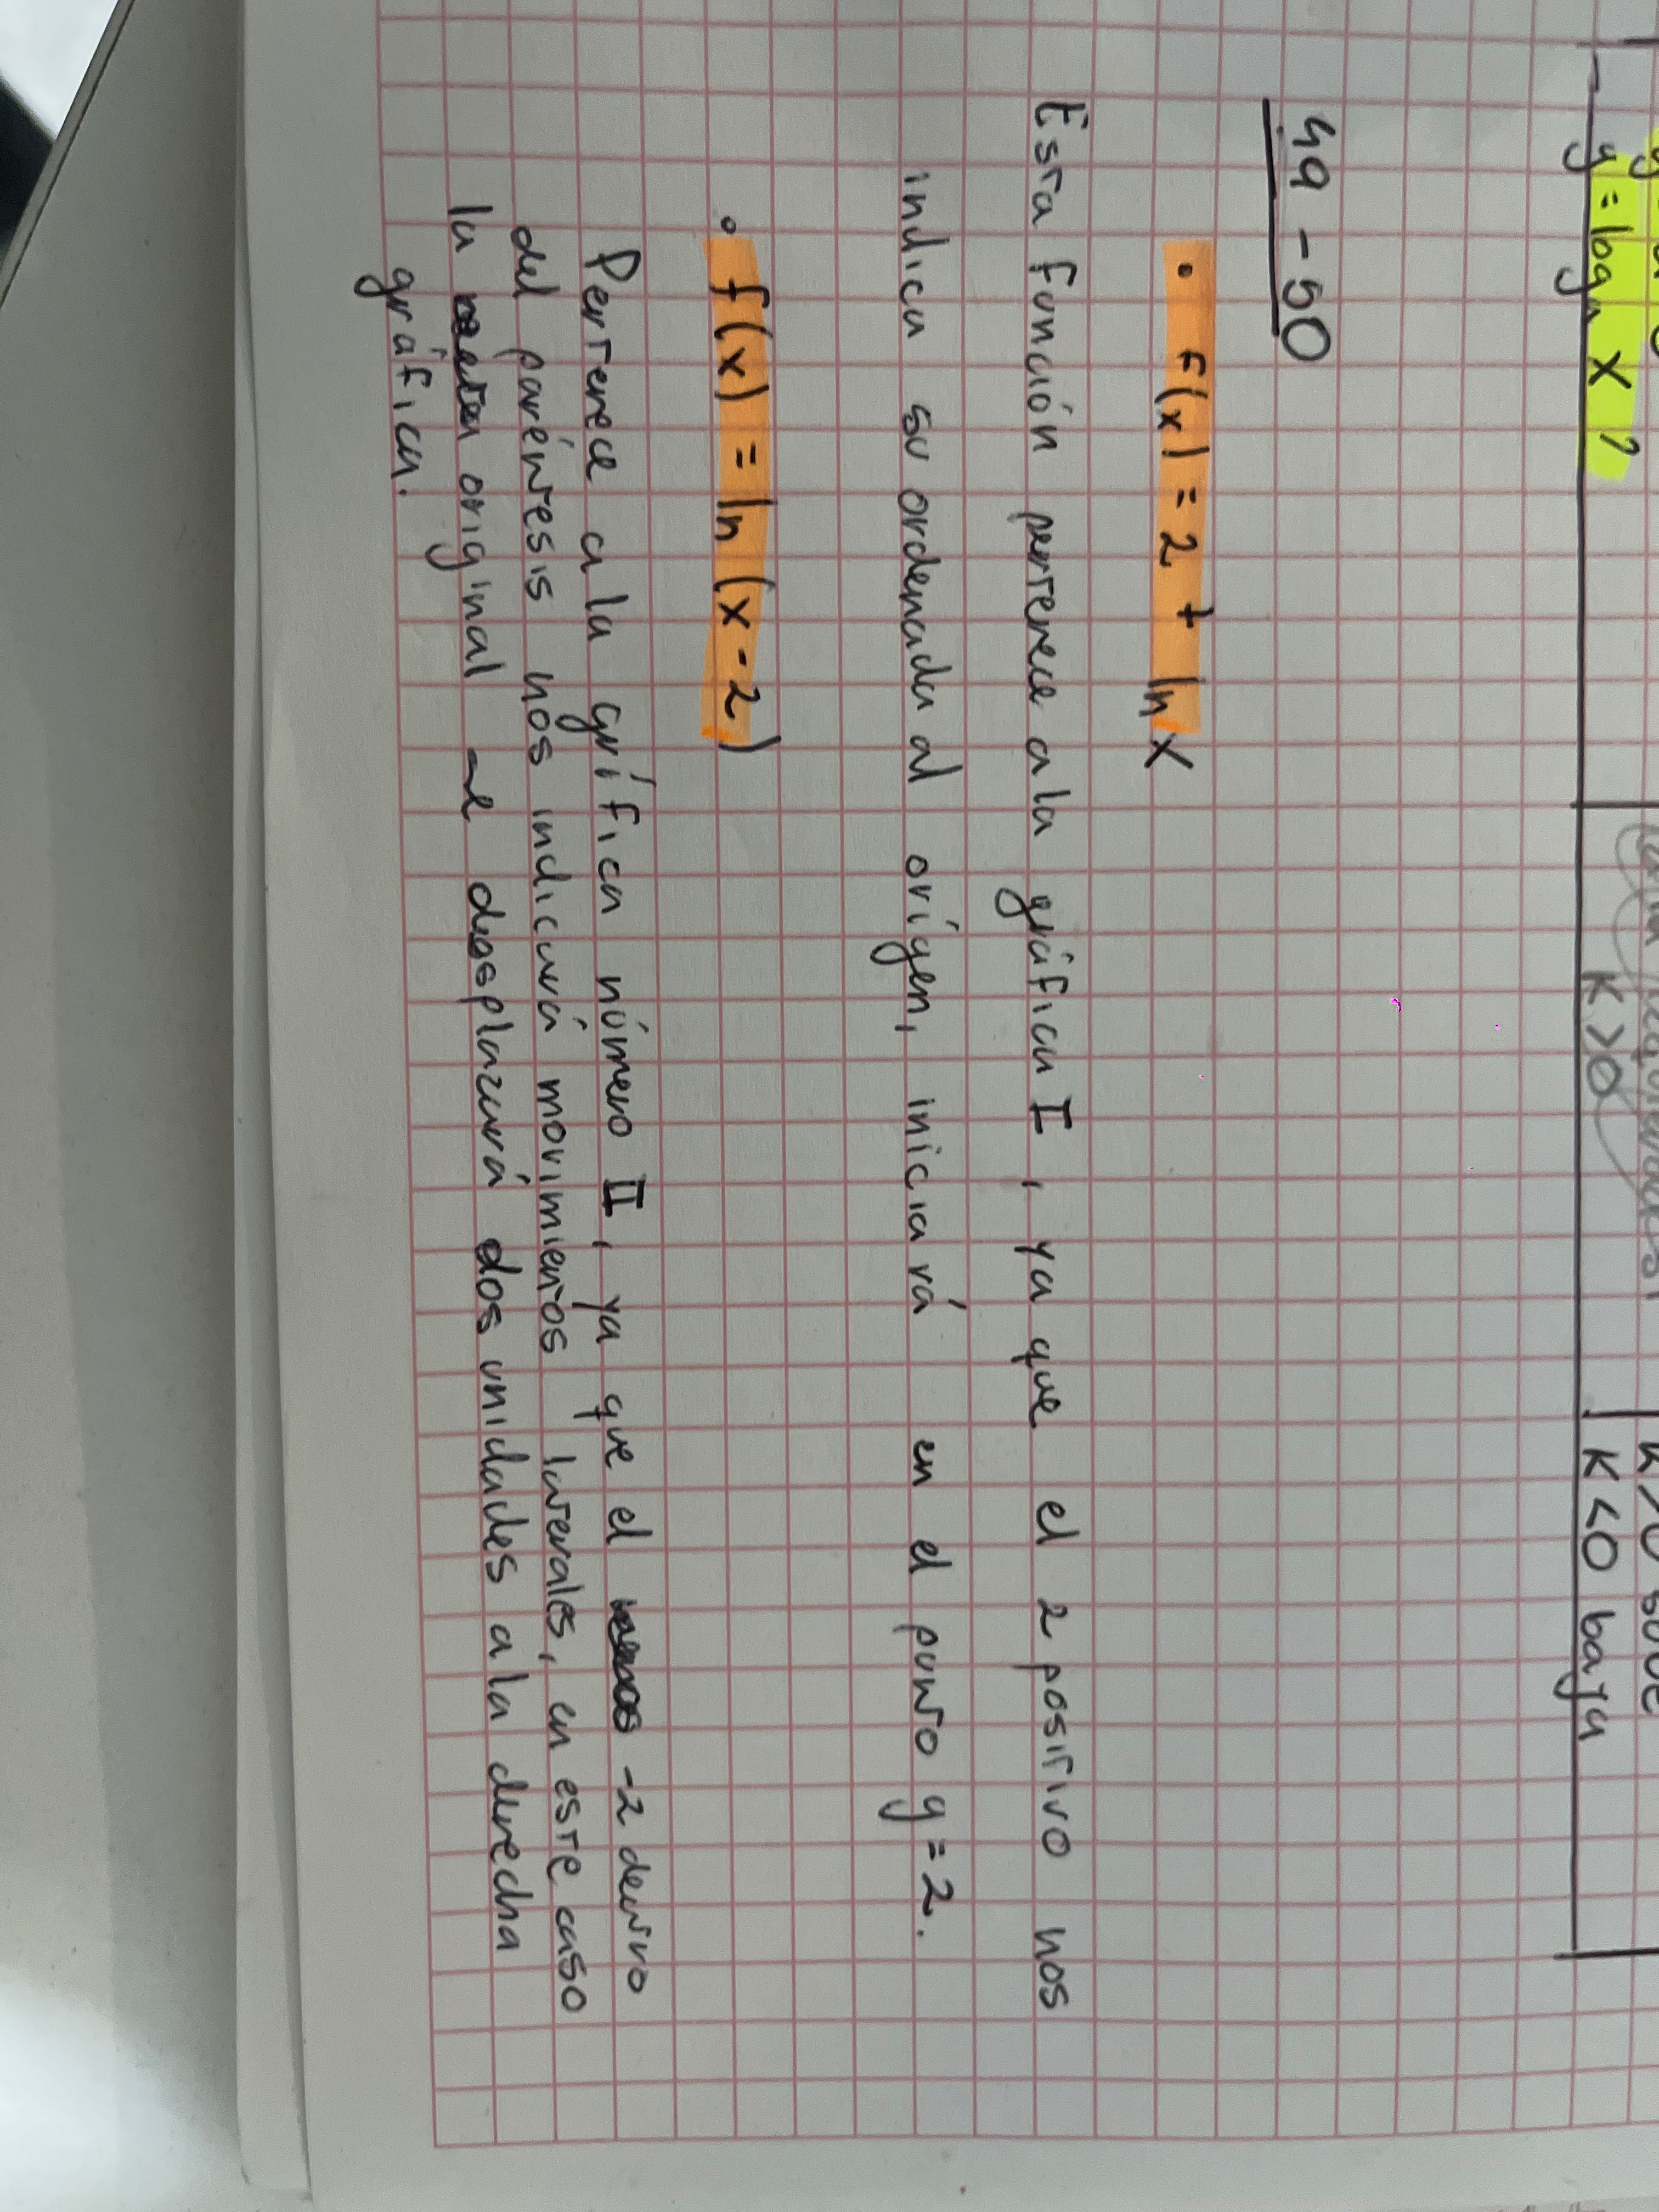 y = loga x?
K>0
K<0 baja
49 - 50
• f(x) = 2 + ln x
Esta función pertenece a la gráfica I, ya que el 2 positivo nos
indica su ordenada al orígen, iniciará en el punto y = 2.
• f(x) = ln (x - 2)
Pertenece a la gráfica número II, ya que el -2 dentro
del paréntesis nos indicará movimientos laterales, en este caso
la original se desplazará dos unidades a la derecha
gráfica.